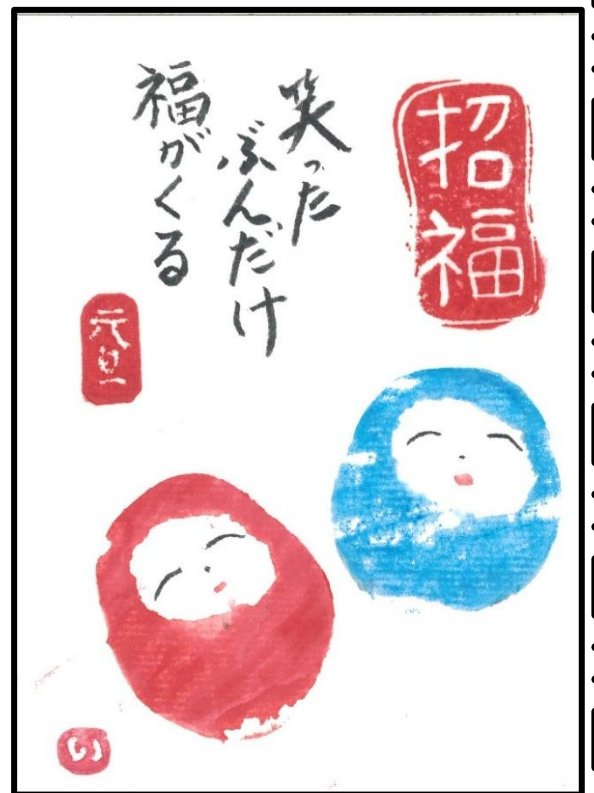 招福
笑った
ぶんだけ
福がくる
元旦
い